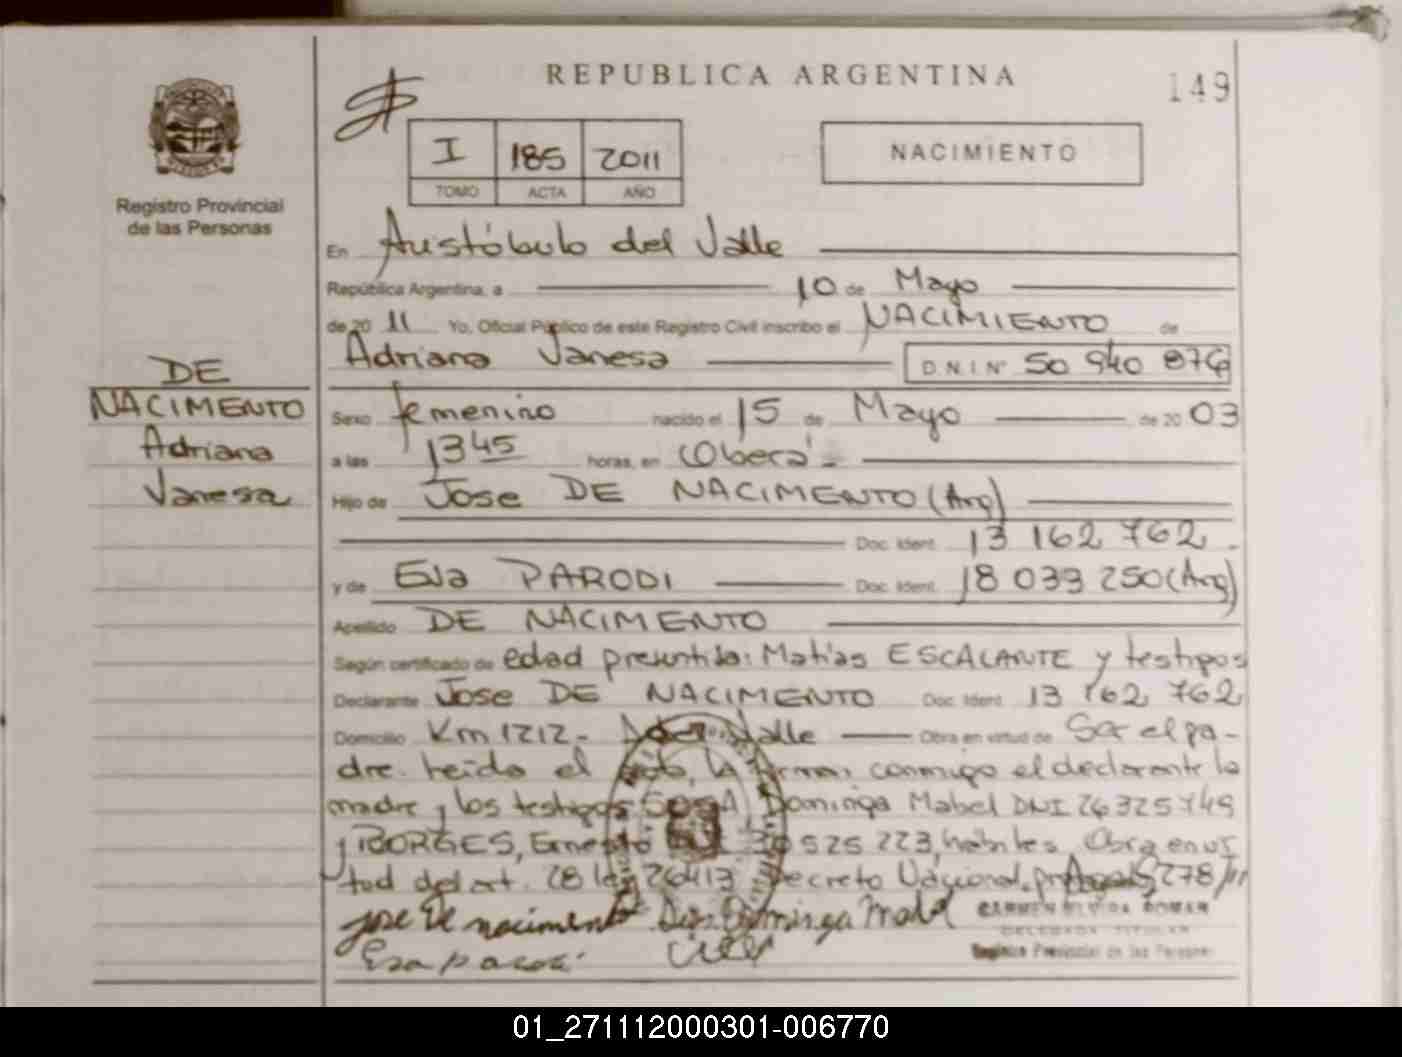 REPUBLICA ARGENTINA
149
I 185 2011
TOMO ACTA AÑO
NACIMIENTO
Registro Provincial
de las Personas
En Aristóbulo del Valle
República Argentina, a 10 de Mayo
de 20 11 Yo, Oficial Público de este Registro Civil inscribo el NACIMIENTO de
Adriana Vanesa D.N.I Nº 50 940 876
DE
NACIMENTO
Adriana
Vanesa
Sexo femenino nacido el 15 de Mayo de 20 03
a las 13 45 horas, en Oberá
Hijo de Jose DE NACIMENTO (Arg)
Doc. Ident. 13 162 762
y de Eva PARODI Doc. Ident. 18 039 250 (Arg)
Apellido DE NACIMENTO
Según certificado de edad presuntiva: Matías ESCALANTE y testigos
Declarante Jose DE NACIMENTO Doc. Ident. 13 162 762
Domicilio Km 1212 - A del Valle Obra en virtud de Ser el pa-
dre. leida el acta, la firman conmigo el declarante la
madre y los testigos SOSA Dominga Mabel DNI 26325749
y BORGES, Ernesto 30 525 223, hábiles. Obra en vir
tud del art. 28 ley 26413 Decreto Nacional 278/11
jose De nacimento Dominga Mabel
Eva parodi
CARMEN ELVIRA ROMAN
DELEGADA TITULAR
Registro Provincial de las Personas
01_271112000301-006770